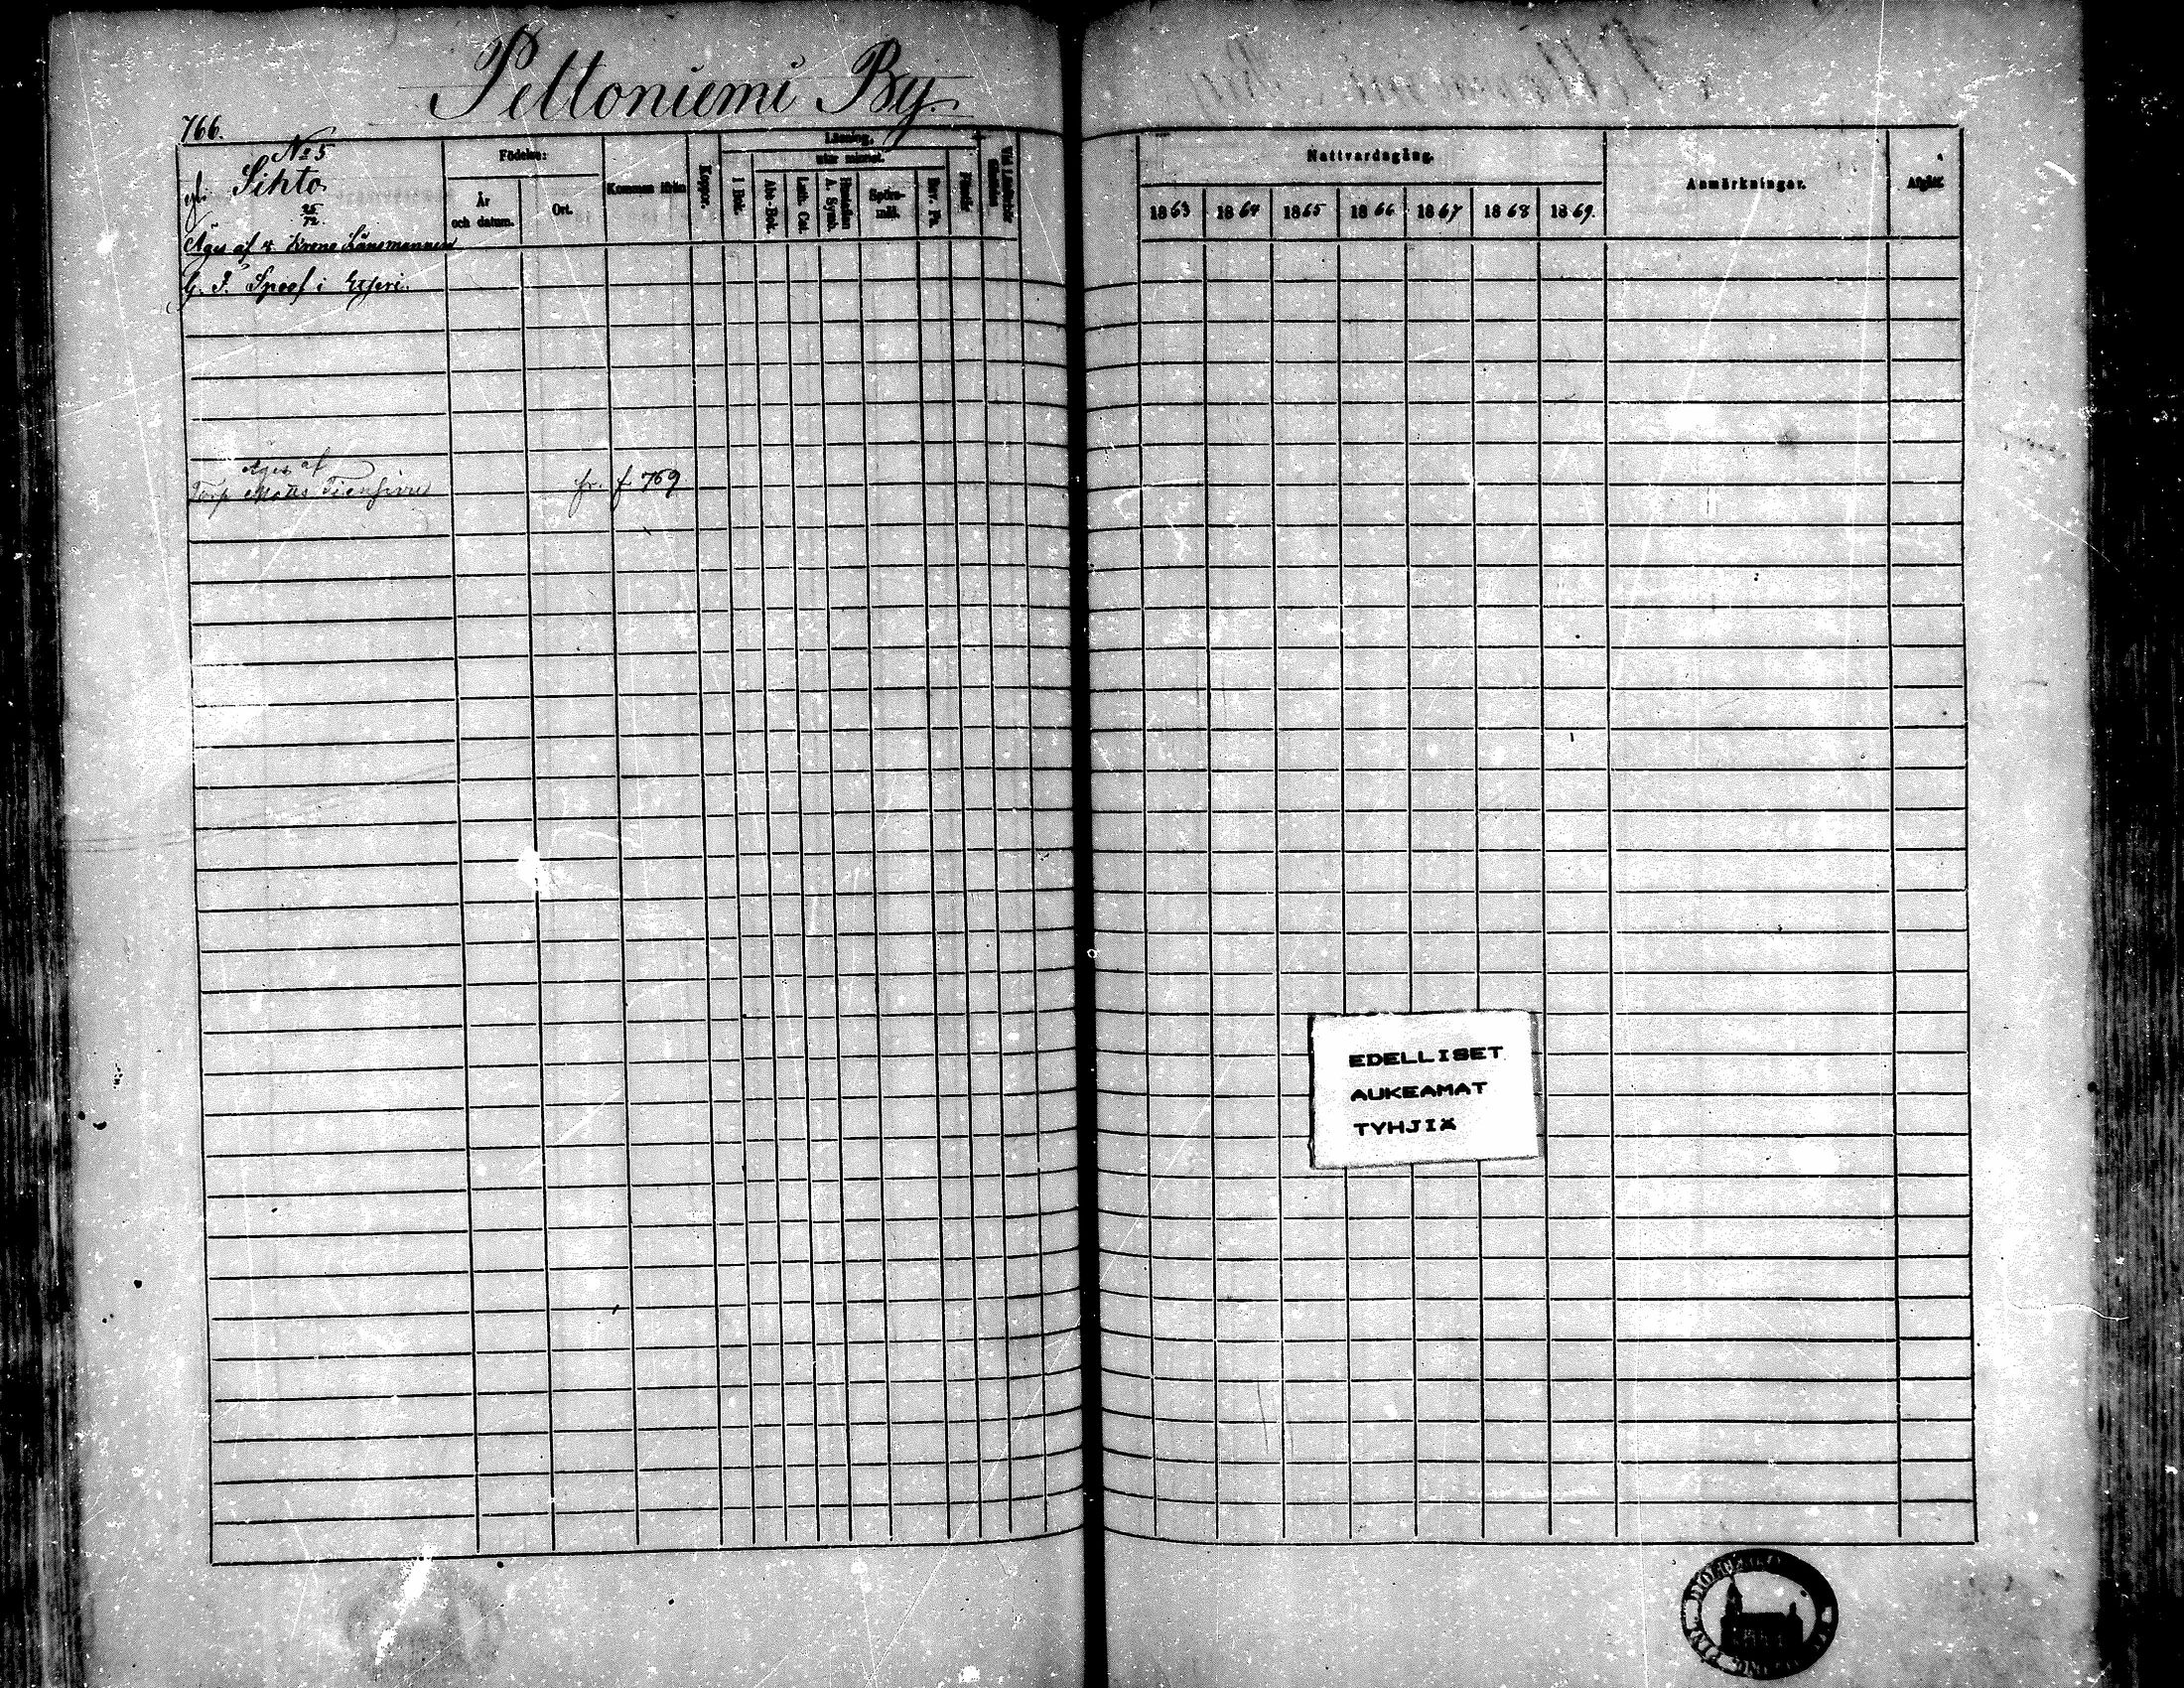 Peltoniemi By.
766.
No 5
Sihto
25/72
Äges af v. Krono Länsmannen
G. I. Spoof i Etseri.
Äges af
Torp Matts
fr. f 769
Födelse:
År
och datum.
Ort.
Kommen ifrån
Koppor.
Läsning.
utur minnet.
I Bok.
Ab-Bok.
Luth. Cat.
Hustaflan
A. Symb.
Spörs-
mål.
Nattvardsgång.
1863 1864 1865 1866 1867 1868 1869.
Anmärkningar.
Afgått.
EDELLISET
AUKEAMAT
TYHJIÄ